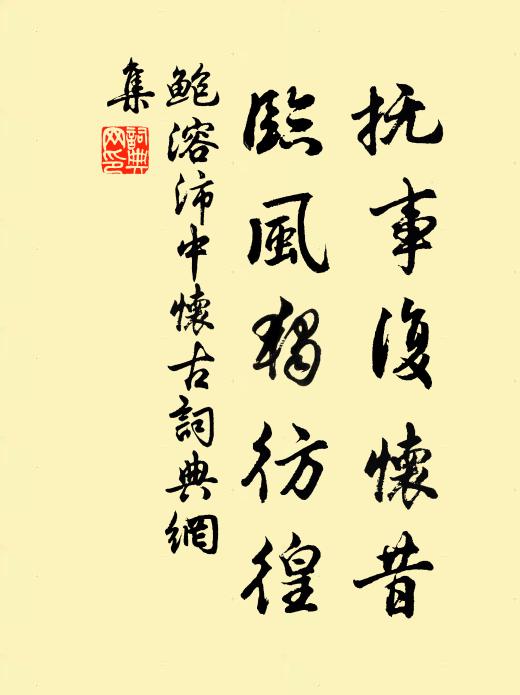 抚事復懷昔
臨風獨彷徨
鲍溶沛中懷古詞典網
集
詞典
网印